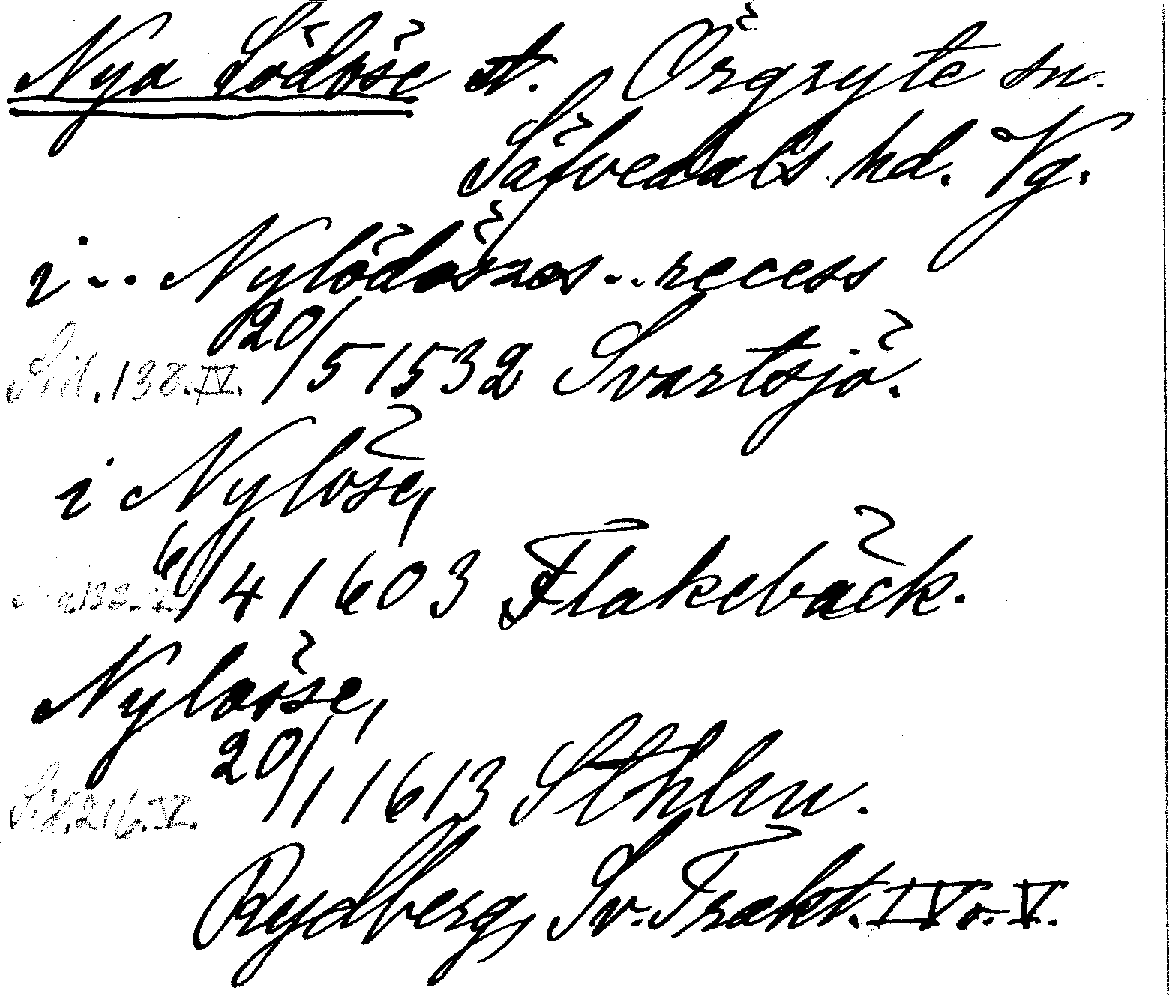 Nya Lödöse st. Örgryte sn.
Säfvedals hd. Vg.
i .. Nylödösses .. recess
Sid. 138. IV. 20/5 1532 Svartsjö.
i Nylöse,
6/4 1603 Flakebäck.
Nylösse,
Sid. 216. V. 20/1 1613 Sthlm.
Rydberg, Sv. Trakt. IV o. V.